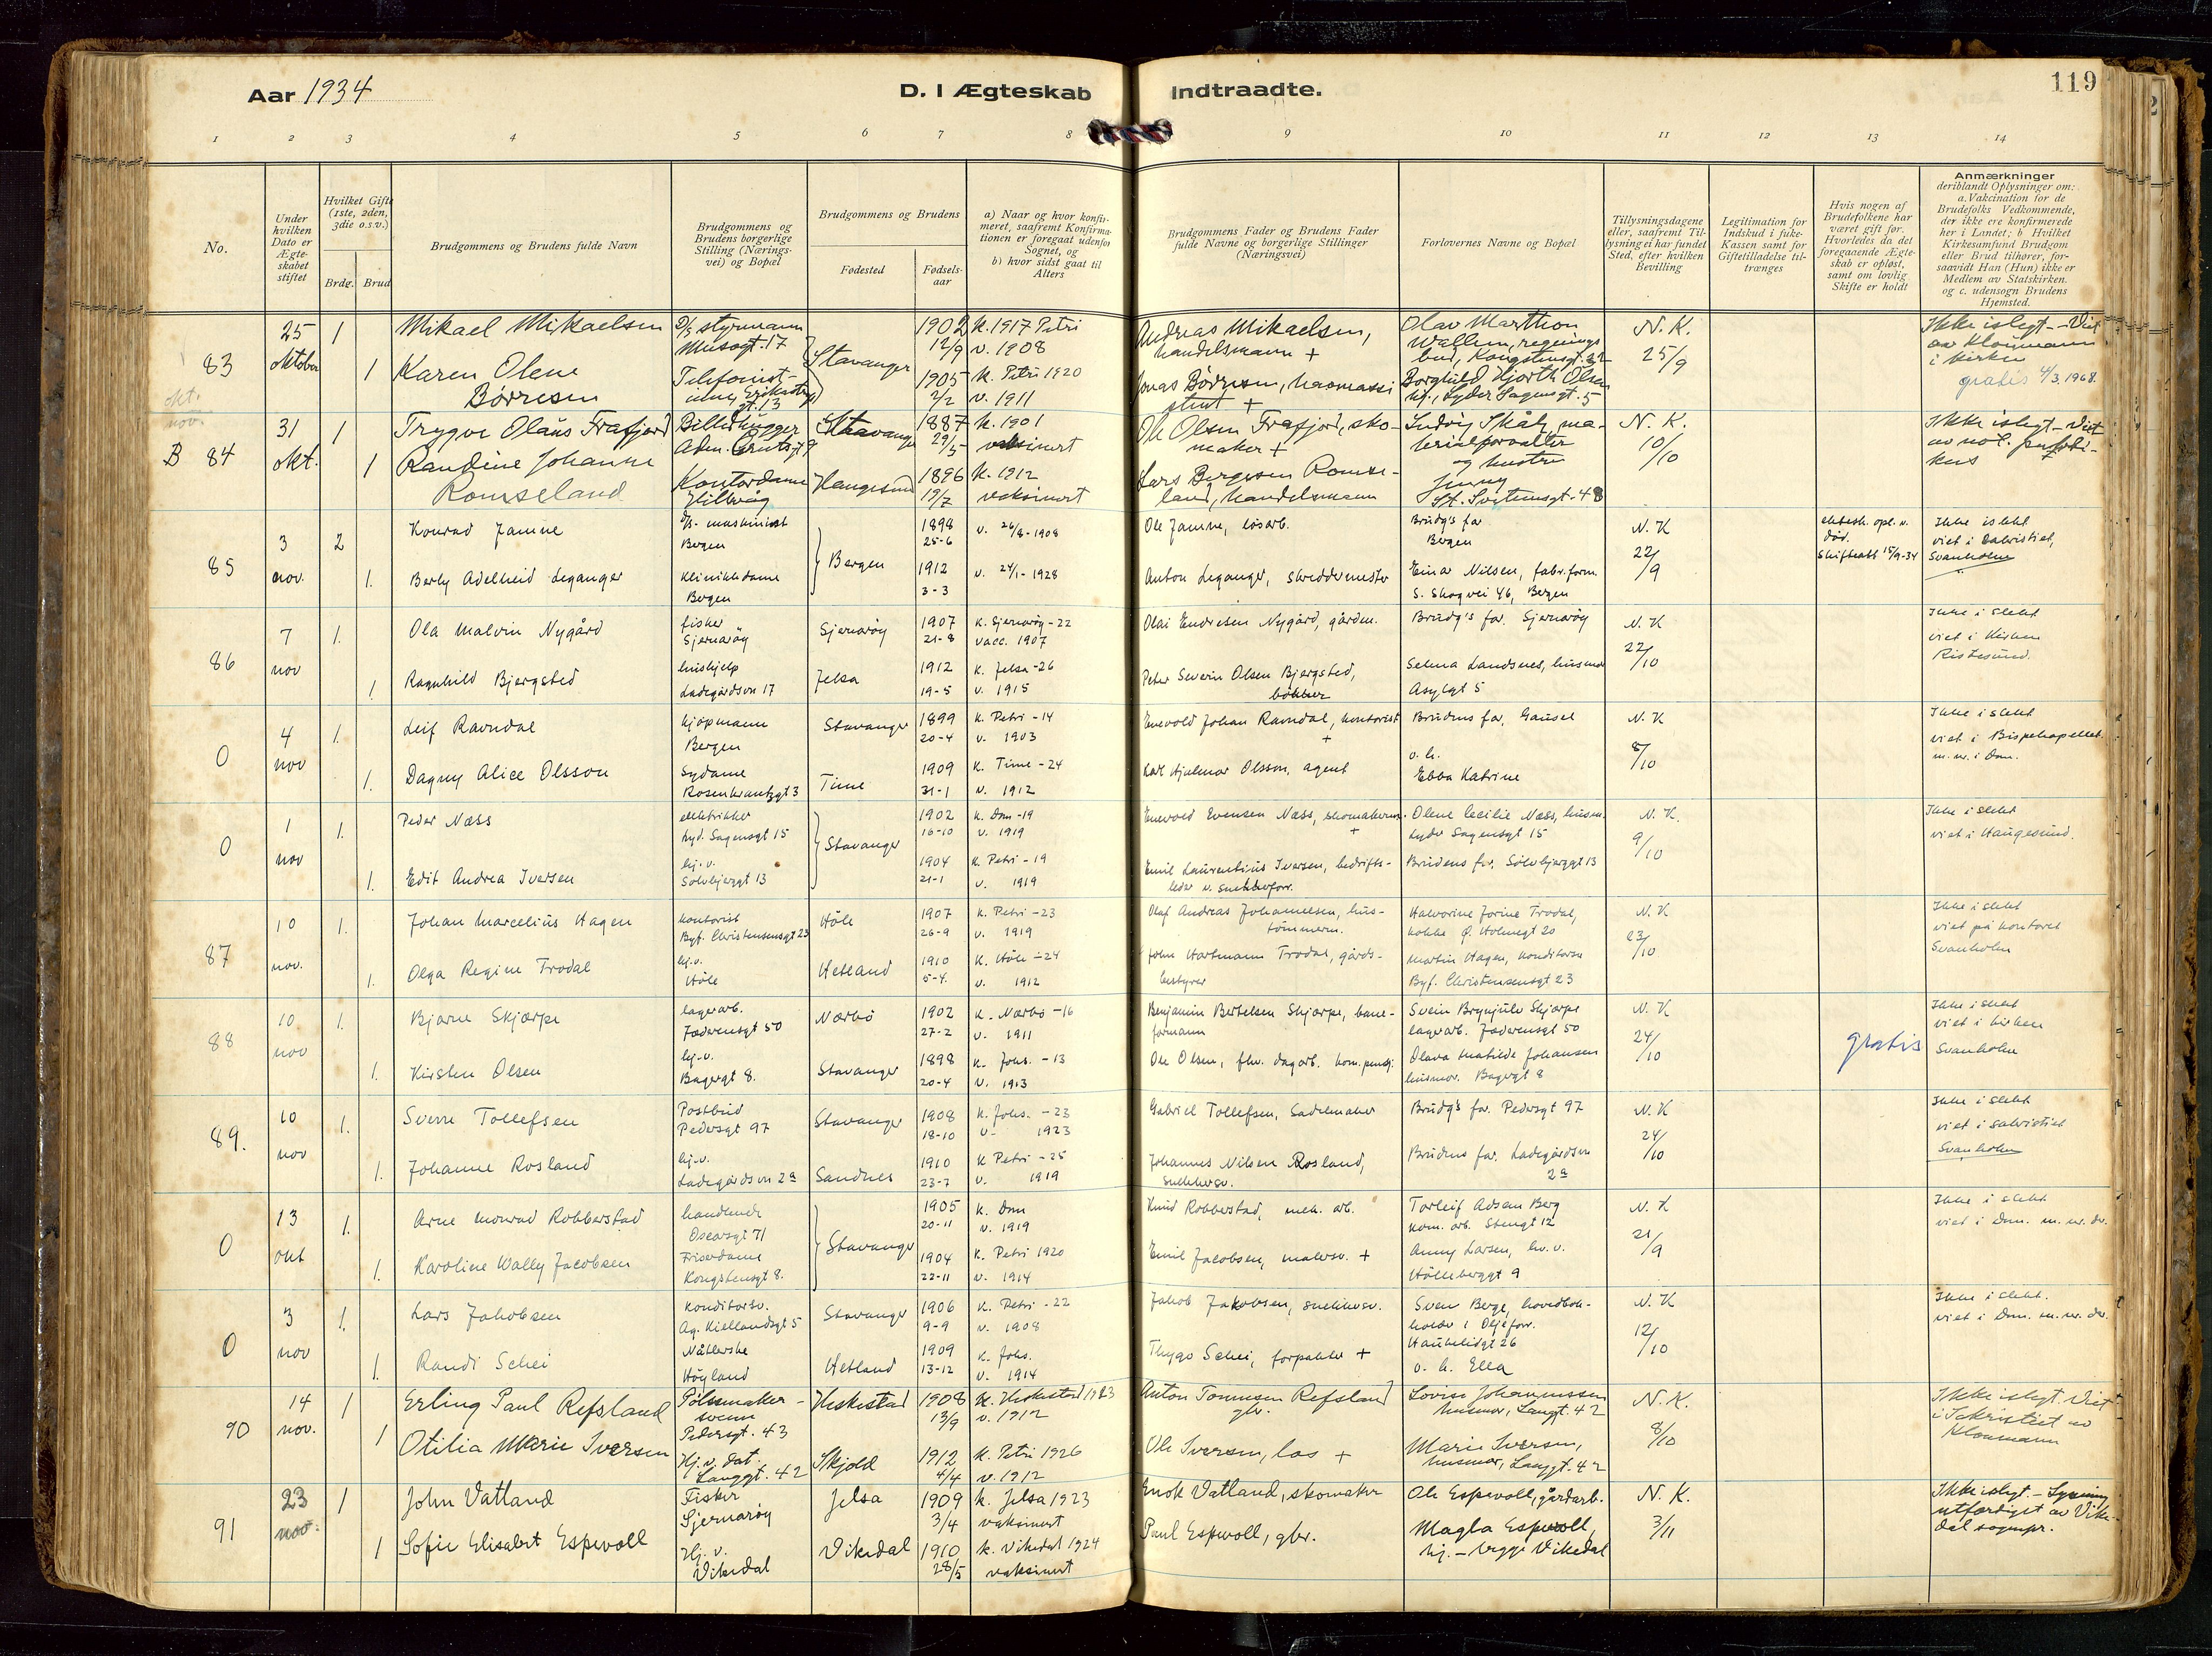 Aar 1934
D. I Ægteskab Indtraadte.
119
1 2 3 4 5 6 7 8 9 10 11 12 13 14
No.
Under hvilken Dato er Ægte-skabet stiftet
Hvilket Gifte (1ste, 2den, 3die o.s.v.)
Brdg. Brud
Brudgommens og Brudens fulde Navn
Brudgommens og Brudens borgerlige Stilling (Nærings-vei) og Bopæl
Brudgommens og Brudens
Fødested
Fødsels-aar
a) Naar og hvor konfir-meret, saafremt Konfirma-tionen er foregaat udenfor Sognet, og b) hvor sidst gaat til Alters
Brudgommens Fader og Brudens Fader fulde Navne og borgerlige Stillinger (Næringsvei)
Forlovernes Navne og Bopæl
Tillysningsdagene eller, saafremt Til-lysning ei har fundet Sted, efter hvilken Bevilling
Legitimation for Indskud i fuke-Kassen samt for Giftetilladelse til-trænges
Hvis nogen af Brudefolkene har været gift før. Hvorledes da det foregaaende Ægte-skab er opløst, samt om lovlig Skifte er holdt
Anmærkninger
deriblandt Oplysninger om: a. Vakcination for de Brudefolks Vedkommende, der ikke ere konfirmerede her i Landet; b Hvilket Kirkesamfund Brudgom eller Brud tilhører, for-saavidt Han (Hun) ikke er Medlem av Statskirken. og c. udensogn Brudens Hjemsted.
83
25 oktober
1 Mikael Mikaelsen
styrmann
Stavanger
1902 12/9
k. 1917 Petri
v. 1908
Andreas Mikaelsen, handelsmann +
Olav Marthon Wallem,
N. K. 25/9
Ikke i slegt - Viet av Klonmann i kirken
gratis 4/3.1968.
1 Karen Olene Børresen
Telefonist
1905 2/2
k. Petri 1920
v. 1911
Jonas Børresen, havneassistent +
Borghild Hjorth Olsen
Lyder Sagensgt. 5
B 84
31 okt.
1 Trygve Olaus Frafjord
Billedhugger
Stavanger
1887 29/5
k. 1901
vaksinert
Ole Olsen Frafjord, skomaker +
Ludvig Skåly, materialforvalter og hustru Jenny
St. Svithunsgt. 48
N. K. 10/10
Ikke i slegt - Viet av not.
1 Randine Johanne Romseland
Kontordame
Haugesund
1896 19/7
k. 1912
vaksinert
Lars Bergesen Romseland, handelsmann
85
3 nov.
2 Konrad Jamne
maskinist
Bergen
Bergen
1898 25-6
v. 26/8-1908
Ole Jamne, løsarb.
Brudg's far Bergen
N. K 22/9
ektesk. opl. v. død.
Skifteatt 15/9-34
Ikke i slekt
viet i Sakristiet,
Svanholm
1. Berly Adelheid Leganger
Klinikkdame
Bergen
1912 3-3
v. 24/1-1928
Anton Leganger, skreddermester
Einar Nilsen, fabr.form.
S. Skogvei 46, Bergen
86
7 nov
1. Ola Malvin Nygård
fisker
Sjernarøy
Sjernarøy
1907 21-8
K. Sjernarøy-22
vacc. 1907
Olai Endresen Nygård, gården.
Brudg's far. Sjernarøy
N. K 22/10
Ikke i slekt
viet i Kirken
1. Ragnhild Bjergsted
hushjelp
Ladegårdsvn 17
Jelsa
1912 19-5
K. Jelsa-26
v. 1915
Peter Severin Olsen Bjergsted, bøkker
Selma Landsnes, husmor
Asylgt 5
0
4 nov
1. Leif Ravndal
kjøpmann
Bergen
Stavanger
1899 20-4
K. Petri-14
v. 1903
Enevold Johan Ravndal, kontorist +
Brudens far, Gausel
N. K 8/10
Ikke i slekt
viet i Bispekapellet
m. nr. i Dom.
1. Dagny Alice Olsson
Sydame
Rosenkrantzgt 3
Time
1909 31-1
K. Time-24
v. 1912
Karl Hjalmar Olsson, agent
o. h.
Ebba Katrine
0
1 nov
1. Peder Næss
elektriker
Lyd. Sagensgt 15
Stavanger
1902 16-10
K. Dom-19
v. 1919
Enevold Evensen Næss, skomakerm. +
Olene Cecilie Næss, husm.
Lyder Sagensgt 15
N. K. 9/10
Ikke i slekt
viet i Haugesund.
1. Edit Andrea Iversen
hj.v.
Sølvbjerggt 13
1904 21-1
K. Petri-19
v. 1919
Emil Laurentius Iversen, bedriftsleder v. snekkerforr.
Brudens far, Sølvbjerggt 13
87
10 nov.
1. Johan Marcelius Hagen
kontorist
Byf. Christensensgt 23
Høle
1907 26-9
K. Petri-23
v. 1919
Olaf Andreas Johannesen, hustømmerm.
Halvorine Jorine Trodal,
kokke Ø. Holmegt 20
N. K 23/10
Ikke i slekt
viet på kontoret
Svanholm
1. Olga Regine Trodal
hj.v.
Høle
Hetland
1910 5-4.
K. Høle-24
v. 1912
John Hartmann Trodal, gårdsbestyrer
Martin Hagen, konditorsv
Byf. Christensensgt 23
88
10 nov
1. Bjarne Skjærpe
lagerarb.
Jæderensgt 50
Nærbø
1902 27-2
K. Nærbø-16
v. 1911
Benjamin Bertelsen Skjærpe, baneformann
Svein Brynjulv Skjærpe
lagerarb. Jæderensgt 50
N. K 24/10
gratis
Ikke i slekt
viet i kirken
Svanholm
1. Kirsten Olsen
hj.v.
Bagergt 8.
Stavanger
1898 20-4
K. Johs.-13
v. 1913
Ole Olsen, fhv. dagarb. kom.pensj.
Olava Matilde Johansen
husmor. Bagergt 8
89.
10 nov
1. Sverre Tollefsen
Postbud
Pedersgt 97
Stavanger
1908 18-10
K. Johs.-23
v- 1923
Gabriel Tollefsen, Sadelmaker
Brudg's far Pedersgt 97
N. K 24/10
Ikke i slekt
viet i sakristiet
Svanholm
1. Johanne Rosland
hj.v.
Ladegårdsvn 2a
Sandnes
1910 23-7
K Petri-25
v. 1919
Johannes Nilsen Rosland, snekkersv.
Brudens far. Ladegårdsvn 2a
0
13 okt
1. Arne Konrad Robberstad
handlende
Oscarsgt 71
Stavanger
1905 20-11
K. Dom
v. 1919
Knud Robberstad, mek. arb.
Torleif Adsen Berg
kom. arb. Stengt 12
N. K 21/9
Ikke i slekt
viet i Dom. m. nr. dr.
1. Karoline Wally Jacobsen
Friserdame
Kongstensgt 8.
1904 22-11
K. Petri 1920
v. 1914
Emil Jacobsen, malersv. +
Anny Larsen, hv.v.
Hølleberggt 9
0
3 nov
1. Lars Jakobsen
Konditorsv.
Ag. Kiellandsgt 5
Stavanger
1906 9-9
K. Petri-22
v. 1908
Jakob Jakobsen, snekkersv.
Sven Berge, hovedbokholder i Oljeforr.
Haukeligt 26
o. h. Ella
N. K 12/10
Ikke i slekt.
viet i Dom. m. nr. dr.
1. Randi Schei
Nåtlerske
Høyland
Hetland
1909 13-12
K. Johs.
v. 1914
Thygo Schei, forpakter +
90
14 nov.
1 Erling Paul Refsland
Pølsemaker-svenn
Pedersgt. 43
Heskestad
1908 13/9
k. Heskestad 1923
v. 1912
Anton Tønnesen Refsland gbr.
Lovise Johannessen
husmor, Langgt. 42
N. K. 8/10
Ikke i slegt. Viet i Sakristiet av Klonmann
1 Otilia Marie Iversen
Hj.v. dat.
Langgt. 42
Skjold
1912 4/4
k. Petri 1926
v. 1912
Ole Iversen, los +
Marie Iversen,
husmor, Langgt. 42
91
23 nov.
1 John Vatland
Fisker
Sjernarøy
Jelsa
1909 3/4
k. Jelsa 1923
vaksinert
Enok Vatland, skomaker
Ole Espevoll, gårdarb.
N. K. 3/11
Ikke i slegt. - Lysning utferdiget av Vikedal sognepr.
1 Sofie Elisabet Espevoll
Hj. v.
Vikedal
Vikedal
1910 28/5
k. Vikedal 1924
vaksinert
Paul Espevoll, gbr.
Magla Espevoll,
hj. - begge Vikedal